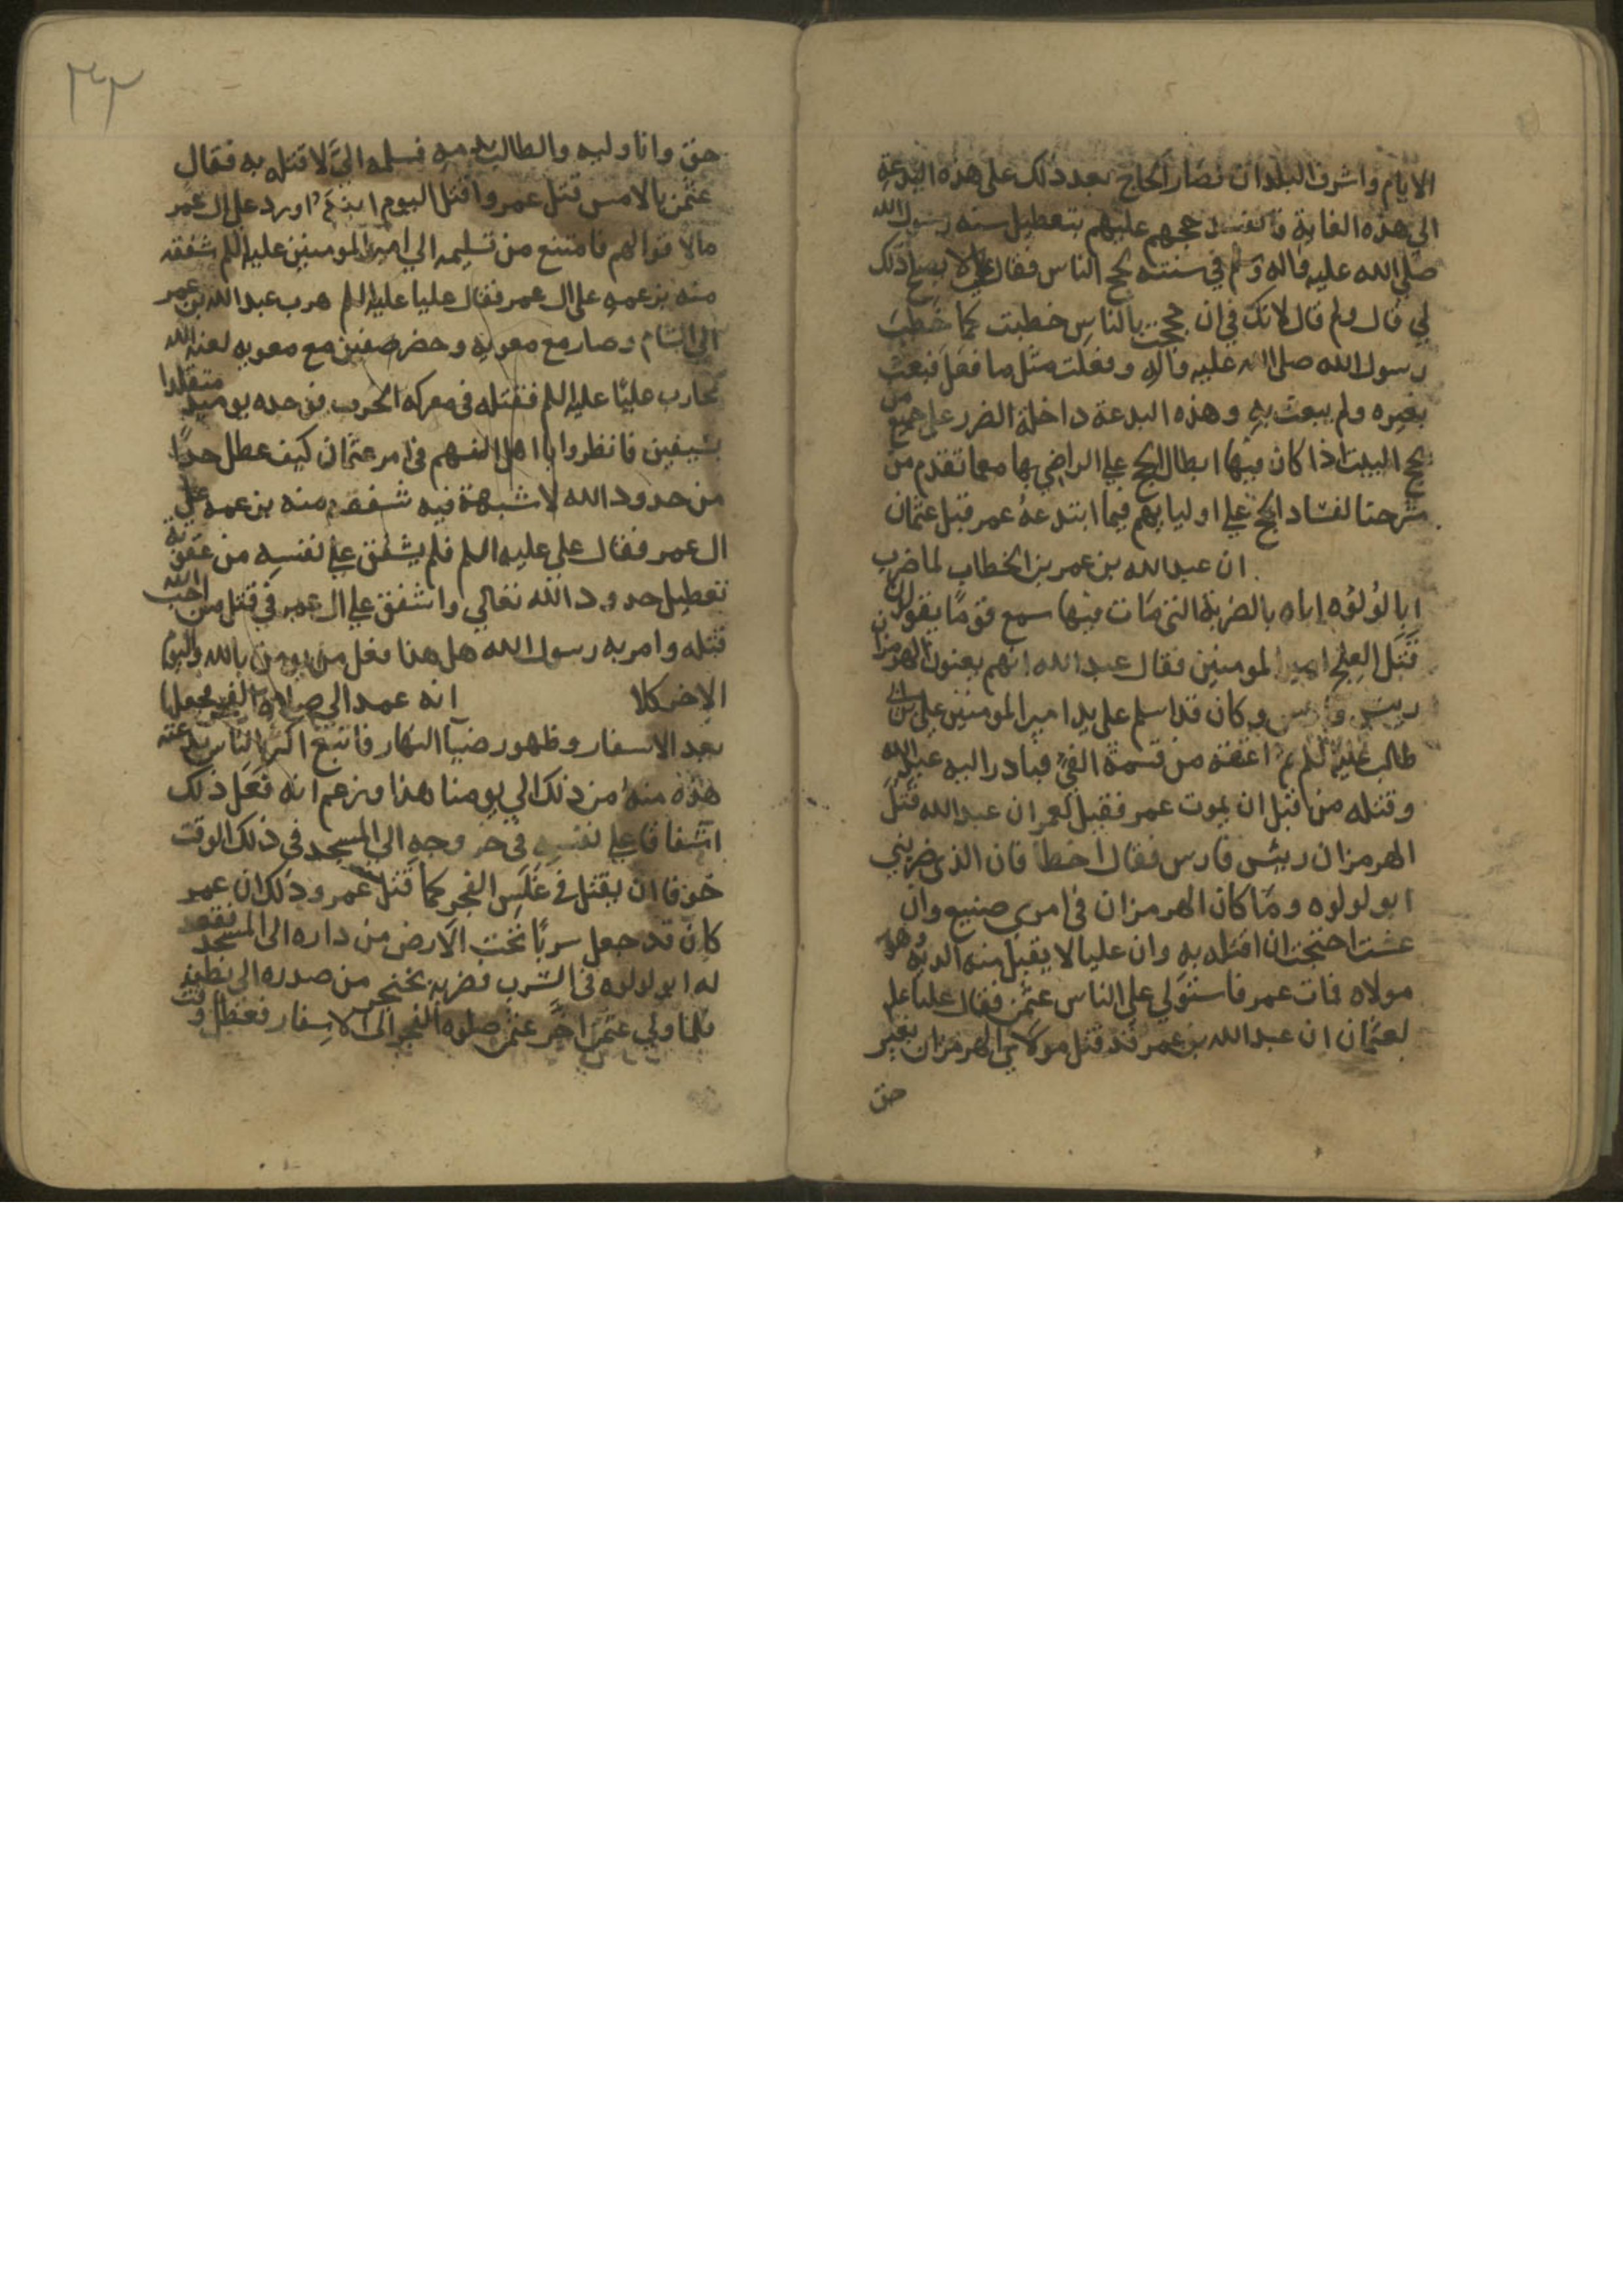 الايام واشرف البلدان فصار الحاج بعد ذلك على هذه البدعة
الى هذه الغاية فافسد حجهم عليهم بتعطيل سنه رسول الله
صلى الله عليه واله وسلم في سنته بحج الناس فقال علي لا يصح ذلك
لي قال ولم قال لانك في ان حججت بالناس خطبت كما خطب
رسول الله صلى الله عليه واله وفعلت مثل ما فعل فبعث
بغيره ولم يبعث به وهذه البدعة داخلة الضرر على جميع من
بحج البيت اذا كان فيها ابطال الحج على الراضي بها معما تقدم من
شرحنا لفساد الحج على اوليايهم فيما ابتدعه عمر قبل عثمان
ان عبد الله بن عمر بن الخطاب لما ضرب
ابا لولوه اباه بالضربة التى مات فيها سمع قوما يقولون
قتل العلج امير المومنين فقال عبد الله انهم يعنون الهرمزان
ريس فارس وكان قد اسلم على يد امير المومنين علي بن ابي
طالب عليه السلم ثم اعتقه من قسمة الفي فبادر اليه عبد الله
وقتله من قبل ان يموت عمر فقيل لعمر ان عبد الله قتل
الهرمزان ريس فارس فقال اخطا فان الذى ضربني
ابو لولوه وما كان الهرمزان في امرى صنيع وان
عشت احتجت ان اقتله به وان عليا لا يقبل منه الدية وهو
مولاه فمات عمر فاستولي على الناس عثمن فقال عليا علم
لعثمان ان عبد الله بن عمر قد قتل مولاي الهرمزان بغير
حق
٣٣
حق وانا وليه والطالب به منه فسلمه الي لا قتله به فقال
عثمن بالامس قتل عمر واقتل اليوم ابنه اورد على ال عمر
مالا قوا لهم فامتنع من تسليمه الي امير المومنين عليه السلم شفقه
منه بزعمه على ال عمر فقال عليا عليه السلم هرب عبد الله بن عمر
الى الشام وصار مع معويه وحضر صفين مع معويه لعنه الله
يحارب عليا عليه السلم فقتله فى معركه الحرب متقلدا
بسيفين فانظروا يا اهل الفهم في امر عثمان كيف عطل حدا
من حدود الله لا شبهة فيه شفقه منه بزعمه على
ال عمر فقال على عليه السلم فلم يشفق على نفسه من عقوبة
تعطيل حدود الله تعالي واشفق على ال عمر في قتل من اوجب الله
قتله وامر به رسول الله هل هذا فعل من يومن بالله واليوم
الاخر كلا انه عمد الي صلاه الفجر فجعلها
بعد الاسفار وظهور ضيآ النهار فاتبع اكثر الناس بدعته
هذه منه من ذلك الي يومنا هذا وزعم انه فعل ذلك
اشفاقا على نفسه في خروجه الي المسجد في ذلك الوقت
خوفا ان يقتل في غلس الفجر كما قتل عمر وذلك ان عمر
كان قد جعل سربا تحت الارض من داره الى المسجد فقعد
له ابو لولوه فى السرب فضربه بخنجر من صدره الى بطنه
فلما ولي عثمن اخر صلوه الفجر الى الاسفار فعطل وقت